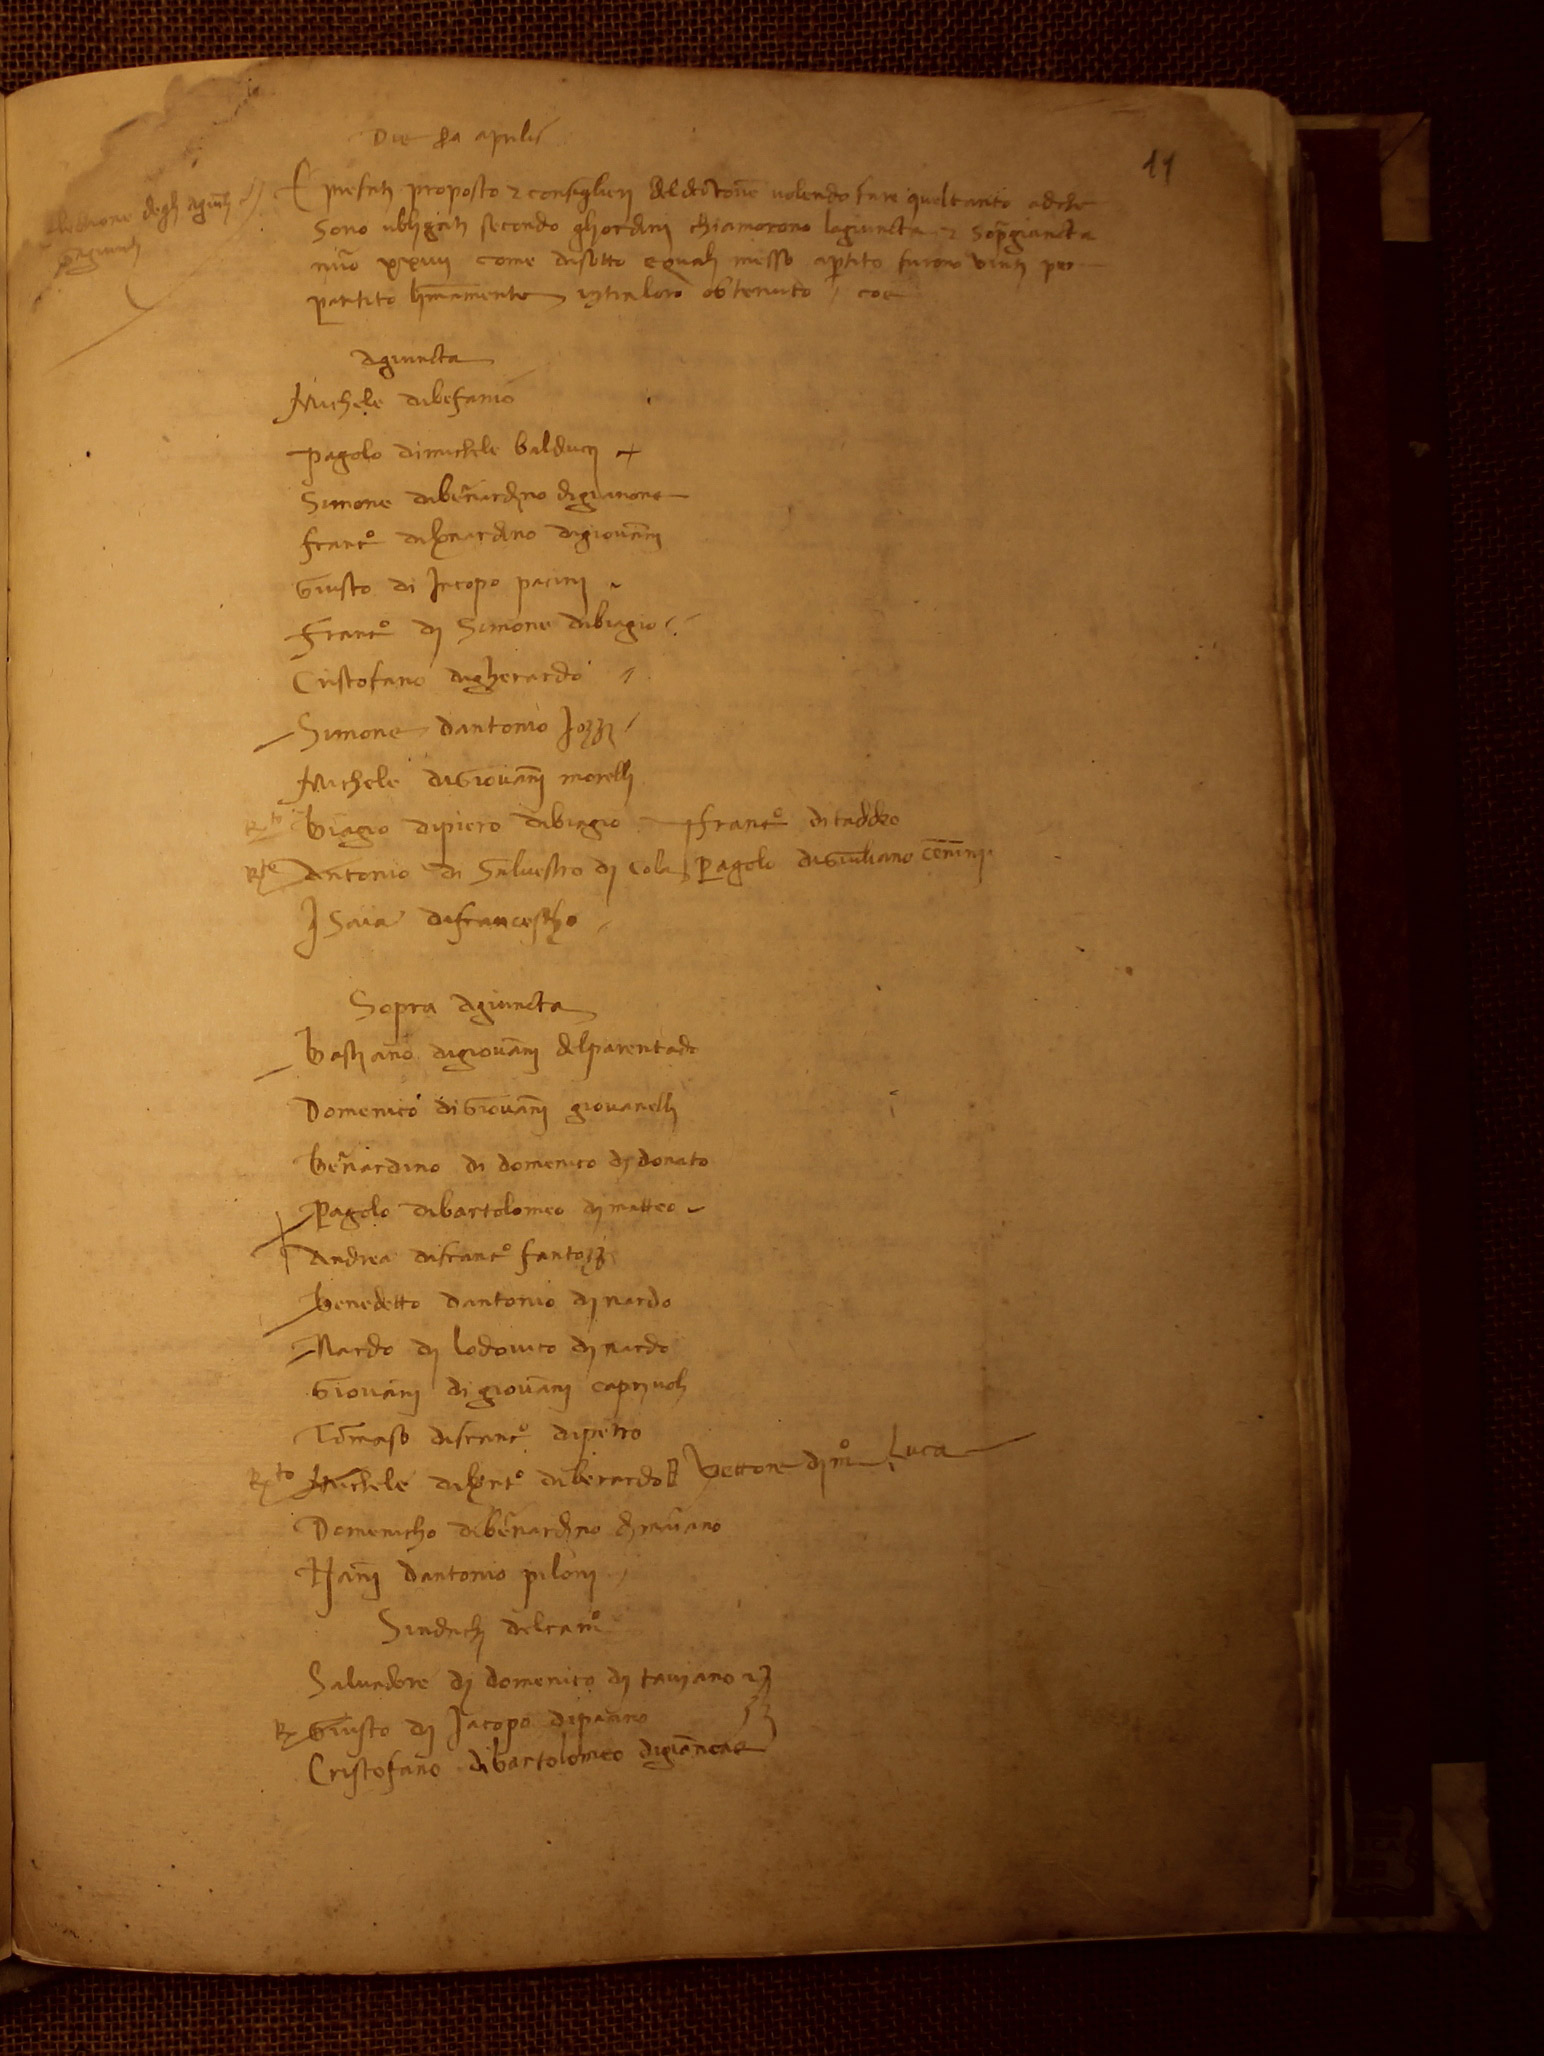 11
Die p̄a aprilis
Electione degli agiunti
E presenti proposto et consiglieri del decto coē volendo fare quel tanto ad che
Sono ubligati secondo gliordini chiamorono lagiuncta et sopragiuncta
nūo xxiiii come disotto equali messo apartito furono vinti per
partito intra loro obtenuto coe
Agiuncta
Michele dibefanio
Pagolo dimichele balducj +
Simone dibernardino digianone
Franc.º dilonardino digiovānj
Giusto di Jacopo pacinj
Franc.º dj Simone dibiagio
Cristofano digherardo
Simone dantonio Jozzj
Michele digiovānj morelli
Rto Biagio dipiero dibiagio Franc.º di taddeo
Rto Antonio di Salvestro dj cola Pagolo digiuliano cenninj
Jsaia difrancescho
Sopra agiuncta
Bastiano digiovānj delparentado
Domenico digiovānj giovanelli
Bernardino di domenico dj donato
Pagolo dibartolomeo dj matteo
Andrea difranc.º fantozzj
Benedetto dantonio dj nardo
Nardo dj lodovico dj nardo
Giovānj di giovānj caprjuolj
Tōmaso difranc.º dipetro
Rto Michele diberardo Vettorе dj mº Luca
Domenicho dibernardjno dj mariano
Nānj dantonio pilonj
Sindachj delcamº
Salvadore dj domenico dj tavjano
R Giusto dj Jacopo dipacino
Cristofano dibartolomeo digianone